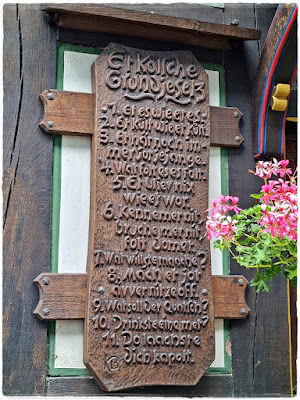 Et kölsche
Grundjesetz
1. Et es wie et es
2. Et kütt wie et kütt
3. Et hät noch im
mer jot jejange.
4. Wat fott es es fott
5. Et bliev nix
wie et wor
6. Kenne mer nit
bruche mer nit
fott domet
7. Wat wills de maache?
8. Mach et jot
ävver nit ze off
9. Wat soll der Quatsch?
10. Drinks de eine met?
11. Do laachs de
dich kapott.